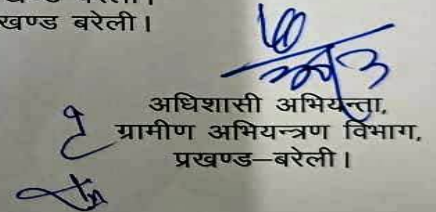 खण्ड बरेली।
अधिशासी अभियन्ता,
ग्रामीण अभियन्त्रण विभाग,
प्रखण्ड–बरेली।